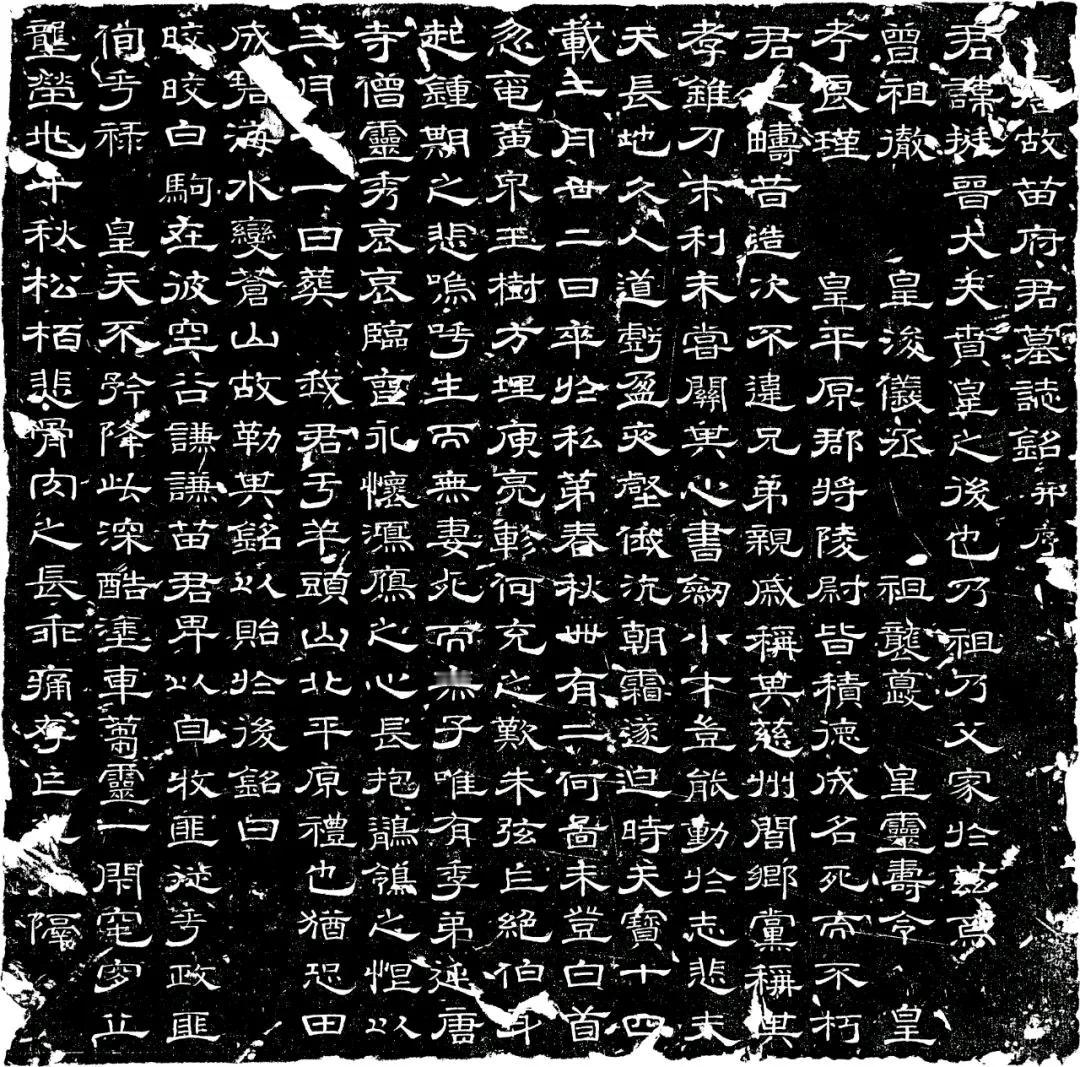 唐故苗府君墓誌銘并序
君諱挺晉大夫賁皇之後也乃祖乃父家於茲焉
曾祖徹 皇浚儀丞 祖襲夔 皇靈壽令 皇
考良瑾 皇平原郡將陵尉皆積德成名死而不朽
君之疇昔造次不違兄弟親戚稱其慈州閭鄉黨稱其
孝錐刀末利未嘗關其心書劒小才豈能動於志悲夫
天長地久人道虧盈夜壑俄沉朝霜遂迫時天寶十四
載十一月廿二日卒於私第春秋卌有二何啚未登白首
忽奄黃泉玉樹方埋庾亮軫何充之歎朱弦亡絕伯牙
起鍾期之悲嗚呼生而無妻死而無子唯有季弟唐
寺僧靈秀哀哀臨穴永懷鴻鴈之心長抱鶺鴒之怛以
三月一日葬 我君于羊頭山北平原禮也猶恐田
成碧海水變蒼山故勒其銘以貽於後銘曰
皎皎白駒在彼空谷謙謙苗君卑以自牧匪從乎政匪
徇乎祿 皇天不矜降此深酷塗車蒭靈一閉窀穸丘
壟塋兆千秋松栢悲骨肉之長乖痛存亡隔